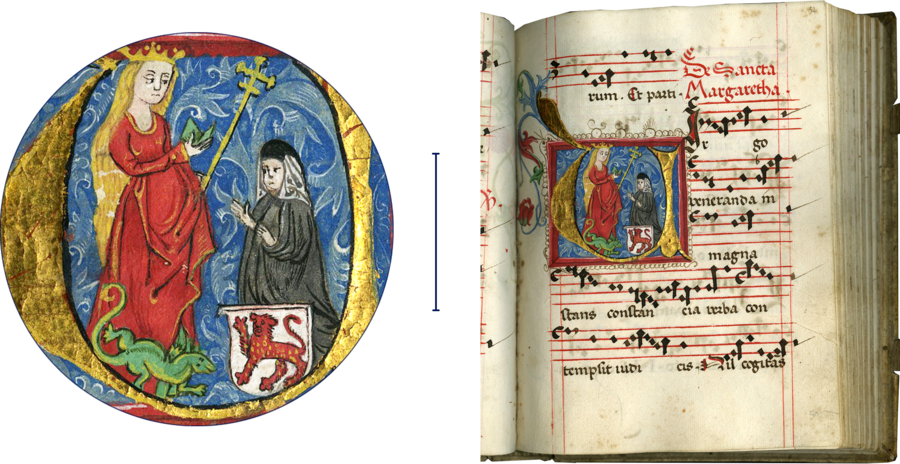 rum. Et parti.
De Sancta
Margaretha.
r go
veneranda in
magna
stans constan cia verba con
tempsit iudi cis. Nil cogitas